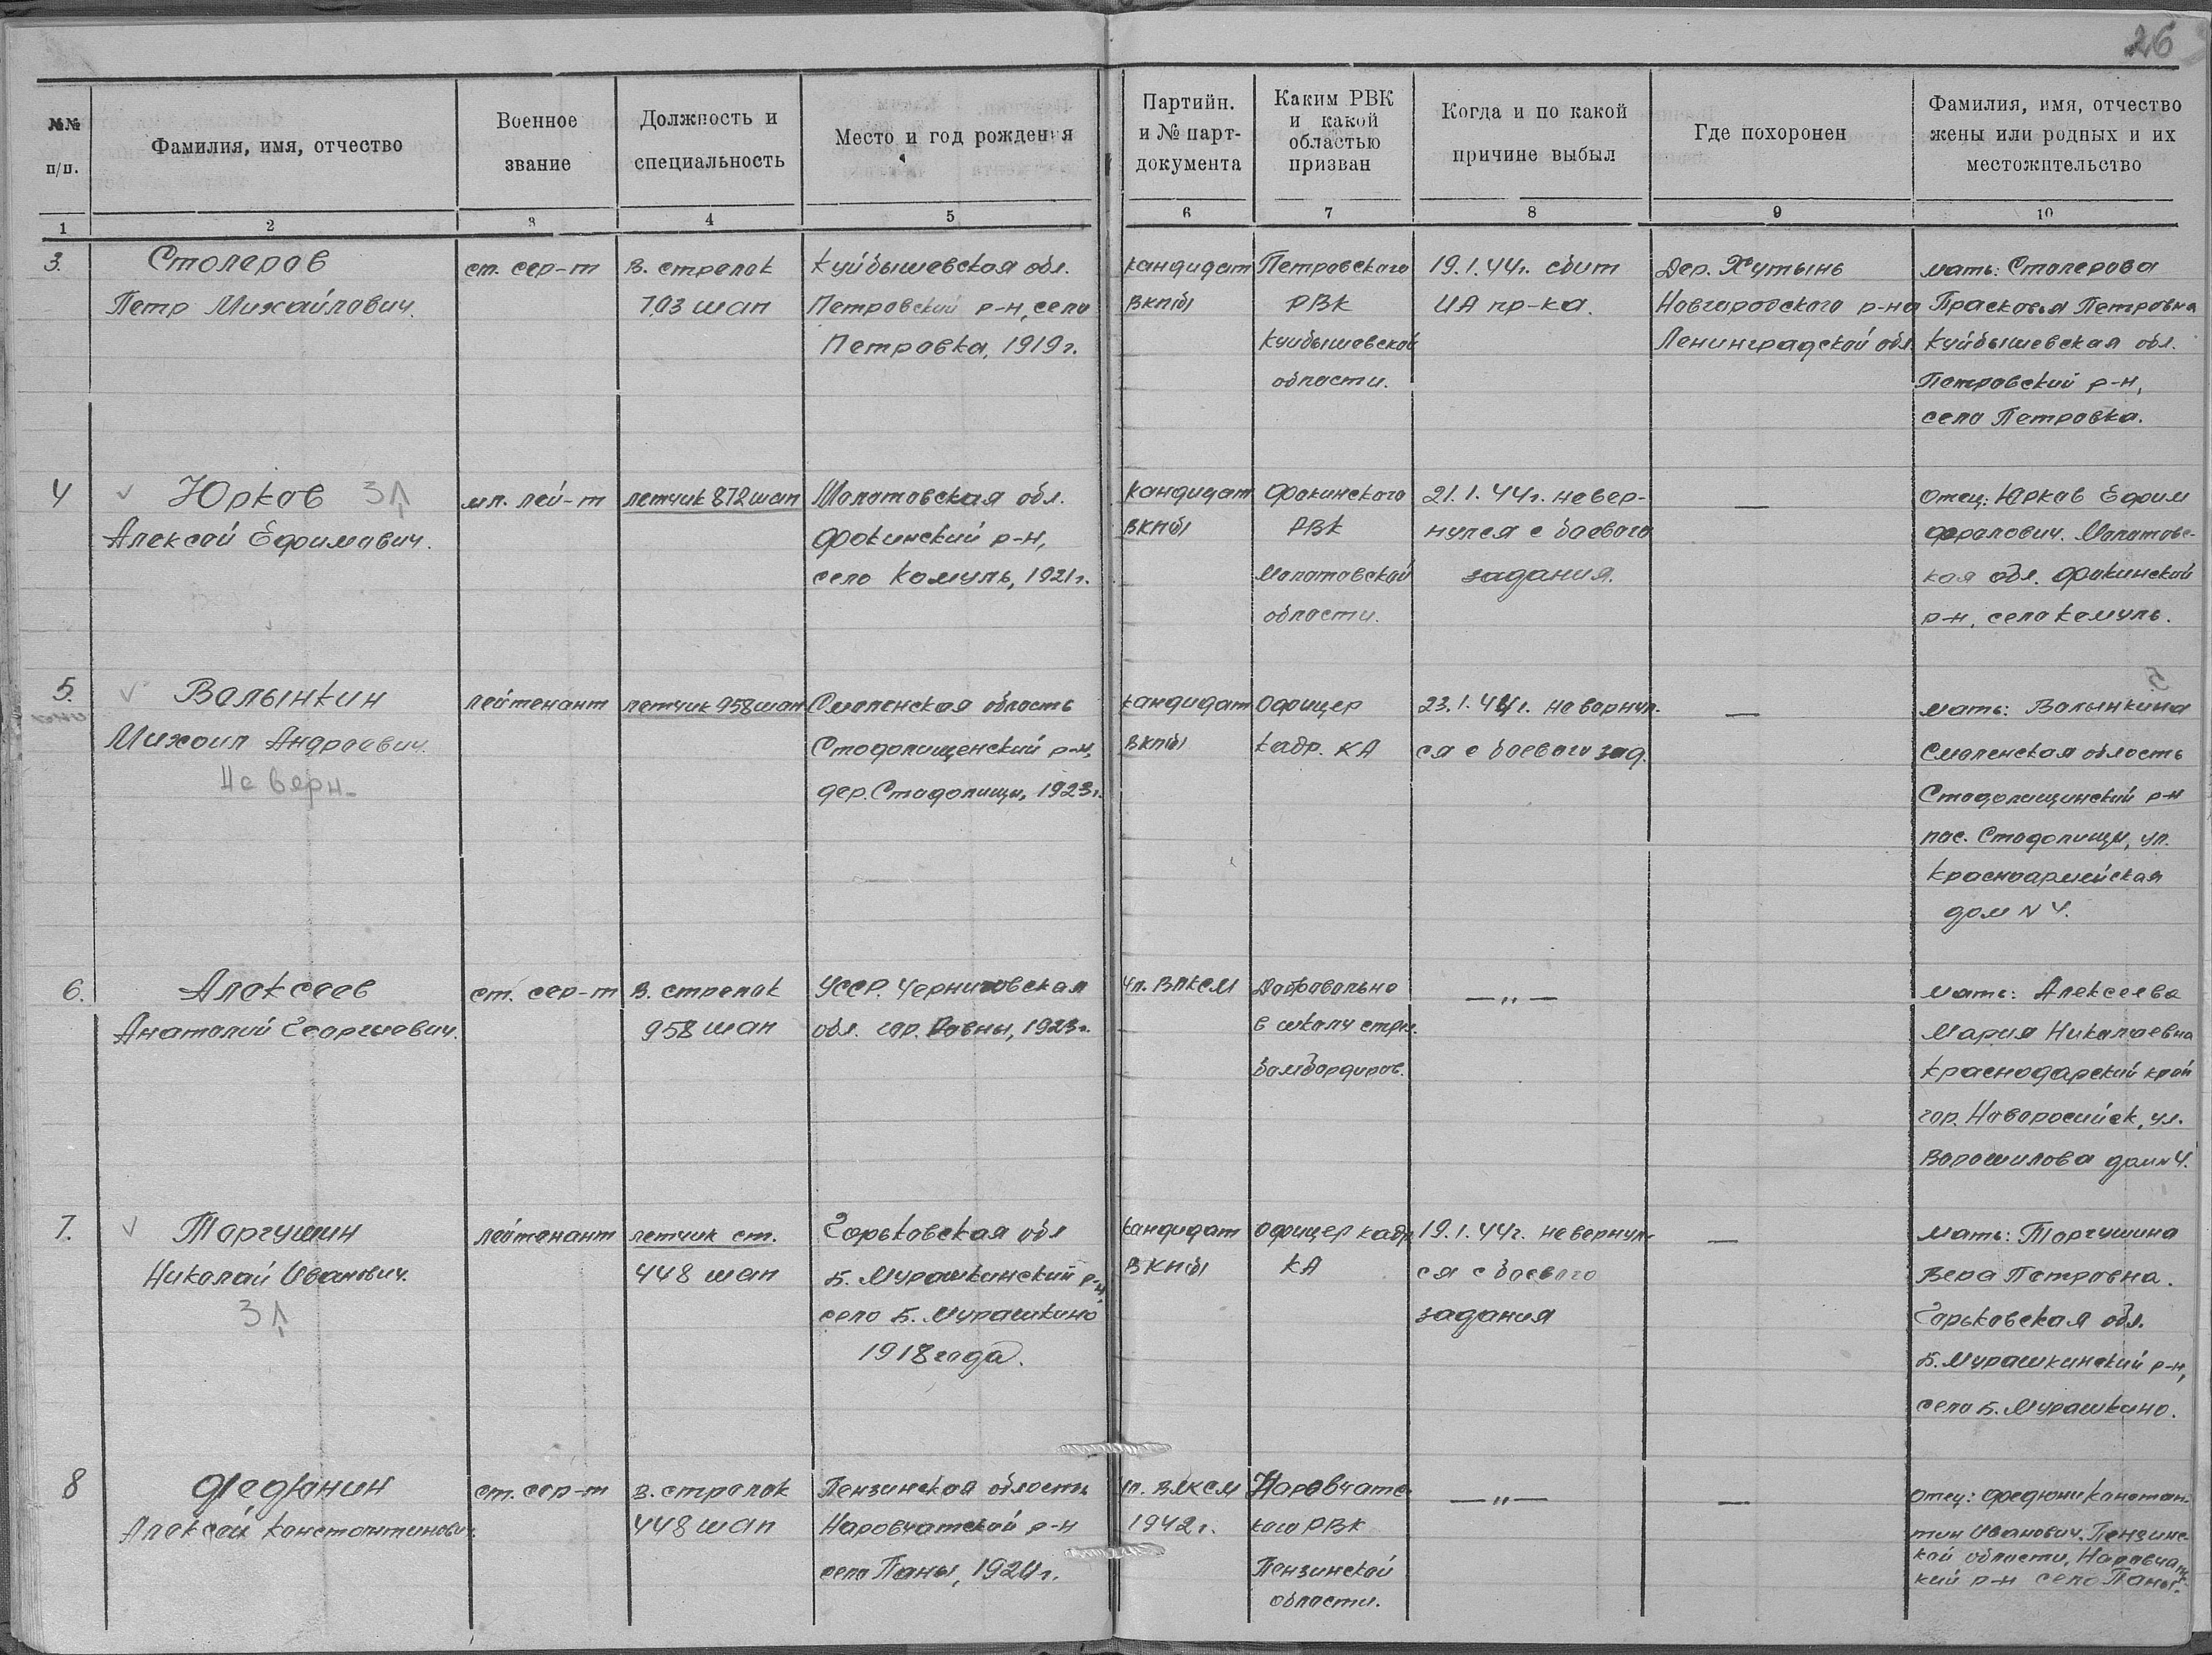 26
№№ п/п.
Фамилия, имя, отчество
Военное звание
Должность и специальность
Место и год рождения
Партийн. и № парт-документа
Каким РВК и какой областью призван
Когда и по какой причине выбыл
Где похоронен
Фамилия, имя, отчество жены или родных и их местожительство
1 2 3 4 5 6 7 8 9 10
3.
Столеров
Петр Михайлович.
ст. сер-т
В. стрелок
703 шап
Куйбышевская обл.
Петровский р-н, село
Петровка, 1919г.
кандидат
ВКП(б)
Петровского
РВК
Куйбышевской
области.
19.1.44г. сбит
ИА пр-ка.
Дер. Хутынь
Новгородского р-на
Ленинградской обл.
мать: Столерова
Прасковья Петровна
Куйбышевская обл.
Петровский р-н,
село Петровка.
4
Юрков
Алексей Ефимович.
мл. лей-т
летчик 872 шап
Молотовская обл.
Фокинский р-н,
село Комуль, 1921г.
Кандидат
ВКП(б)
Фокинского
РВК
Молотовской
области.
21.1.44г. невер-
нулся с боевого
задания.
—
отец: Юрков Ефим
Молотовс-
кая обл. Фокинской
р-н, село Комуль.
5.
Волынкин
Михаил Андреевич.
Не верн-
лейтенант
летчик 958 шап
Смоленская область
Стодолищенский р-н,
дер. Стодолищи, 1923г.
кандидат
ВКП(б)
Офицер
кадр. КА
23.1.44г. не вернул-
ся с боевого зад.
—
мать: Волынкина
Смоленская область
Стодолищинский р-н
пос. Стодолищи, ул.
Красноармейская
дом N 4.
6.
Алексеев
Анатолий Георгиевич.
ст. сер-т
В. стрелок
958 шап
УССР. Черниговская
обл. гор. Ровны, 1923г.
Чл. ВЛКСМ
Добровольно
в школу стрел.
бомбардиров.
—„—
мать: Алексеева
Мария Николаевна
Краснодарский край
гор. Новоросийск, ул.
Ворошилова дом N 4.
7.
Торгушин
Николай Иванович.
лейтенант
летчик ст.
448 шап
Горьковская обл
Б. Мурашкинский р-н,
село Б. Мурашкино
1918 года.
кандидат
ВКП(б)
офицер кадр
КА
19.1.44г. не вернул-
ся с боевого
задания
—
мать: Торгушина
Вера Петровна.
Горьковская обл.
Б. Мурашкинский р-н,
село Б. Мурашкино.
8
Федюнин
Алексей Константинович.
ст. сер-т
В. стрелок
448 шап
Пензинская область
Наровчатской р-н
село Паны, 1924г.
чл. ВЛКСМ
1942г.
Наровчатс-
кого РВК
Пензинской
области.
—„—
—
отец: Федюни Констан-
тин Иванович. Пензинс-
кой области, Наровчат-
кий р-н село Паны.